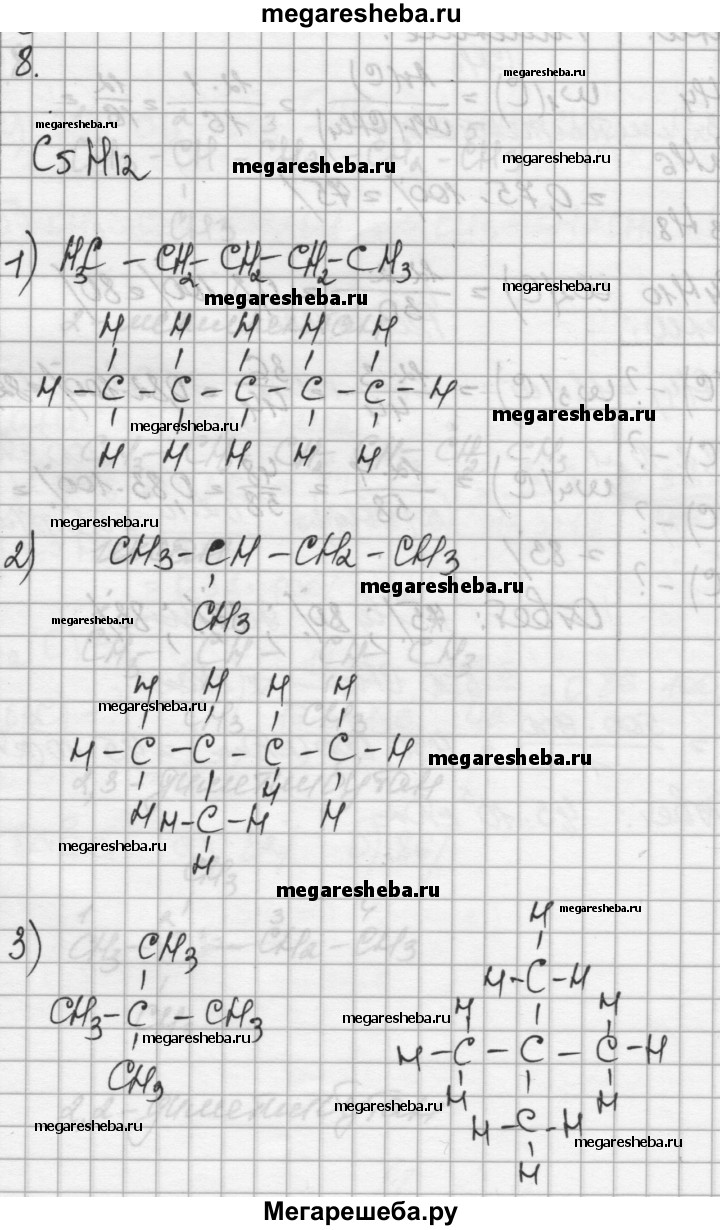 megaresheba.ru
8.
megaresheba.ru
megaresheba.ru
C5H12
megaresheba.ru
megaresheba.ru
1) H3C - CH2 - CH2 - CH2 - CH3
megaresheba.ru
megaresheba.ru
H H H H H
H - C - C - C - C - C - H
megaresheba.ru
megaresheba.ru
H H H H H
megaresheba.ru
2) CH3 - CH - CH2 - CH3
megaresheba.ru
CH3
megaresheba.ru
H H H H
megaresheba.ru
H - C - C - C - C - H
megaresheba.ru
H
H H - C - H H
megaresheba.ru
H
megaresheba.ru
H
megaresheba.ru
3) CH3
H - C - H
CH3 - C - CH3
megaresheba.ru
megaresheba.ru
H H
H - C - C - C - H
CH3
H H
megaresheba.ru
megaresheba.ru
H - C - H
megaresheba.ru
H
Мегарешеба.ру